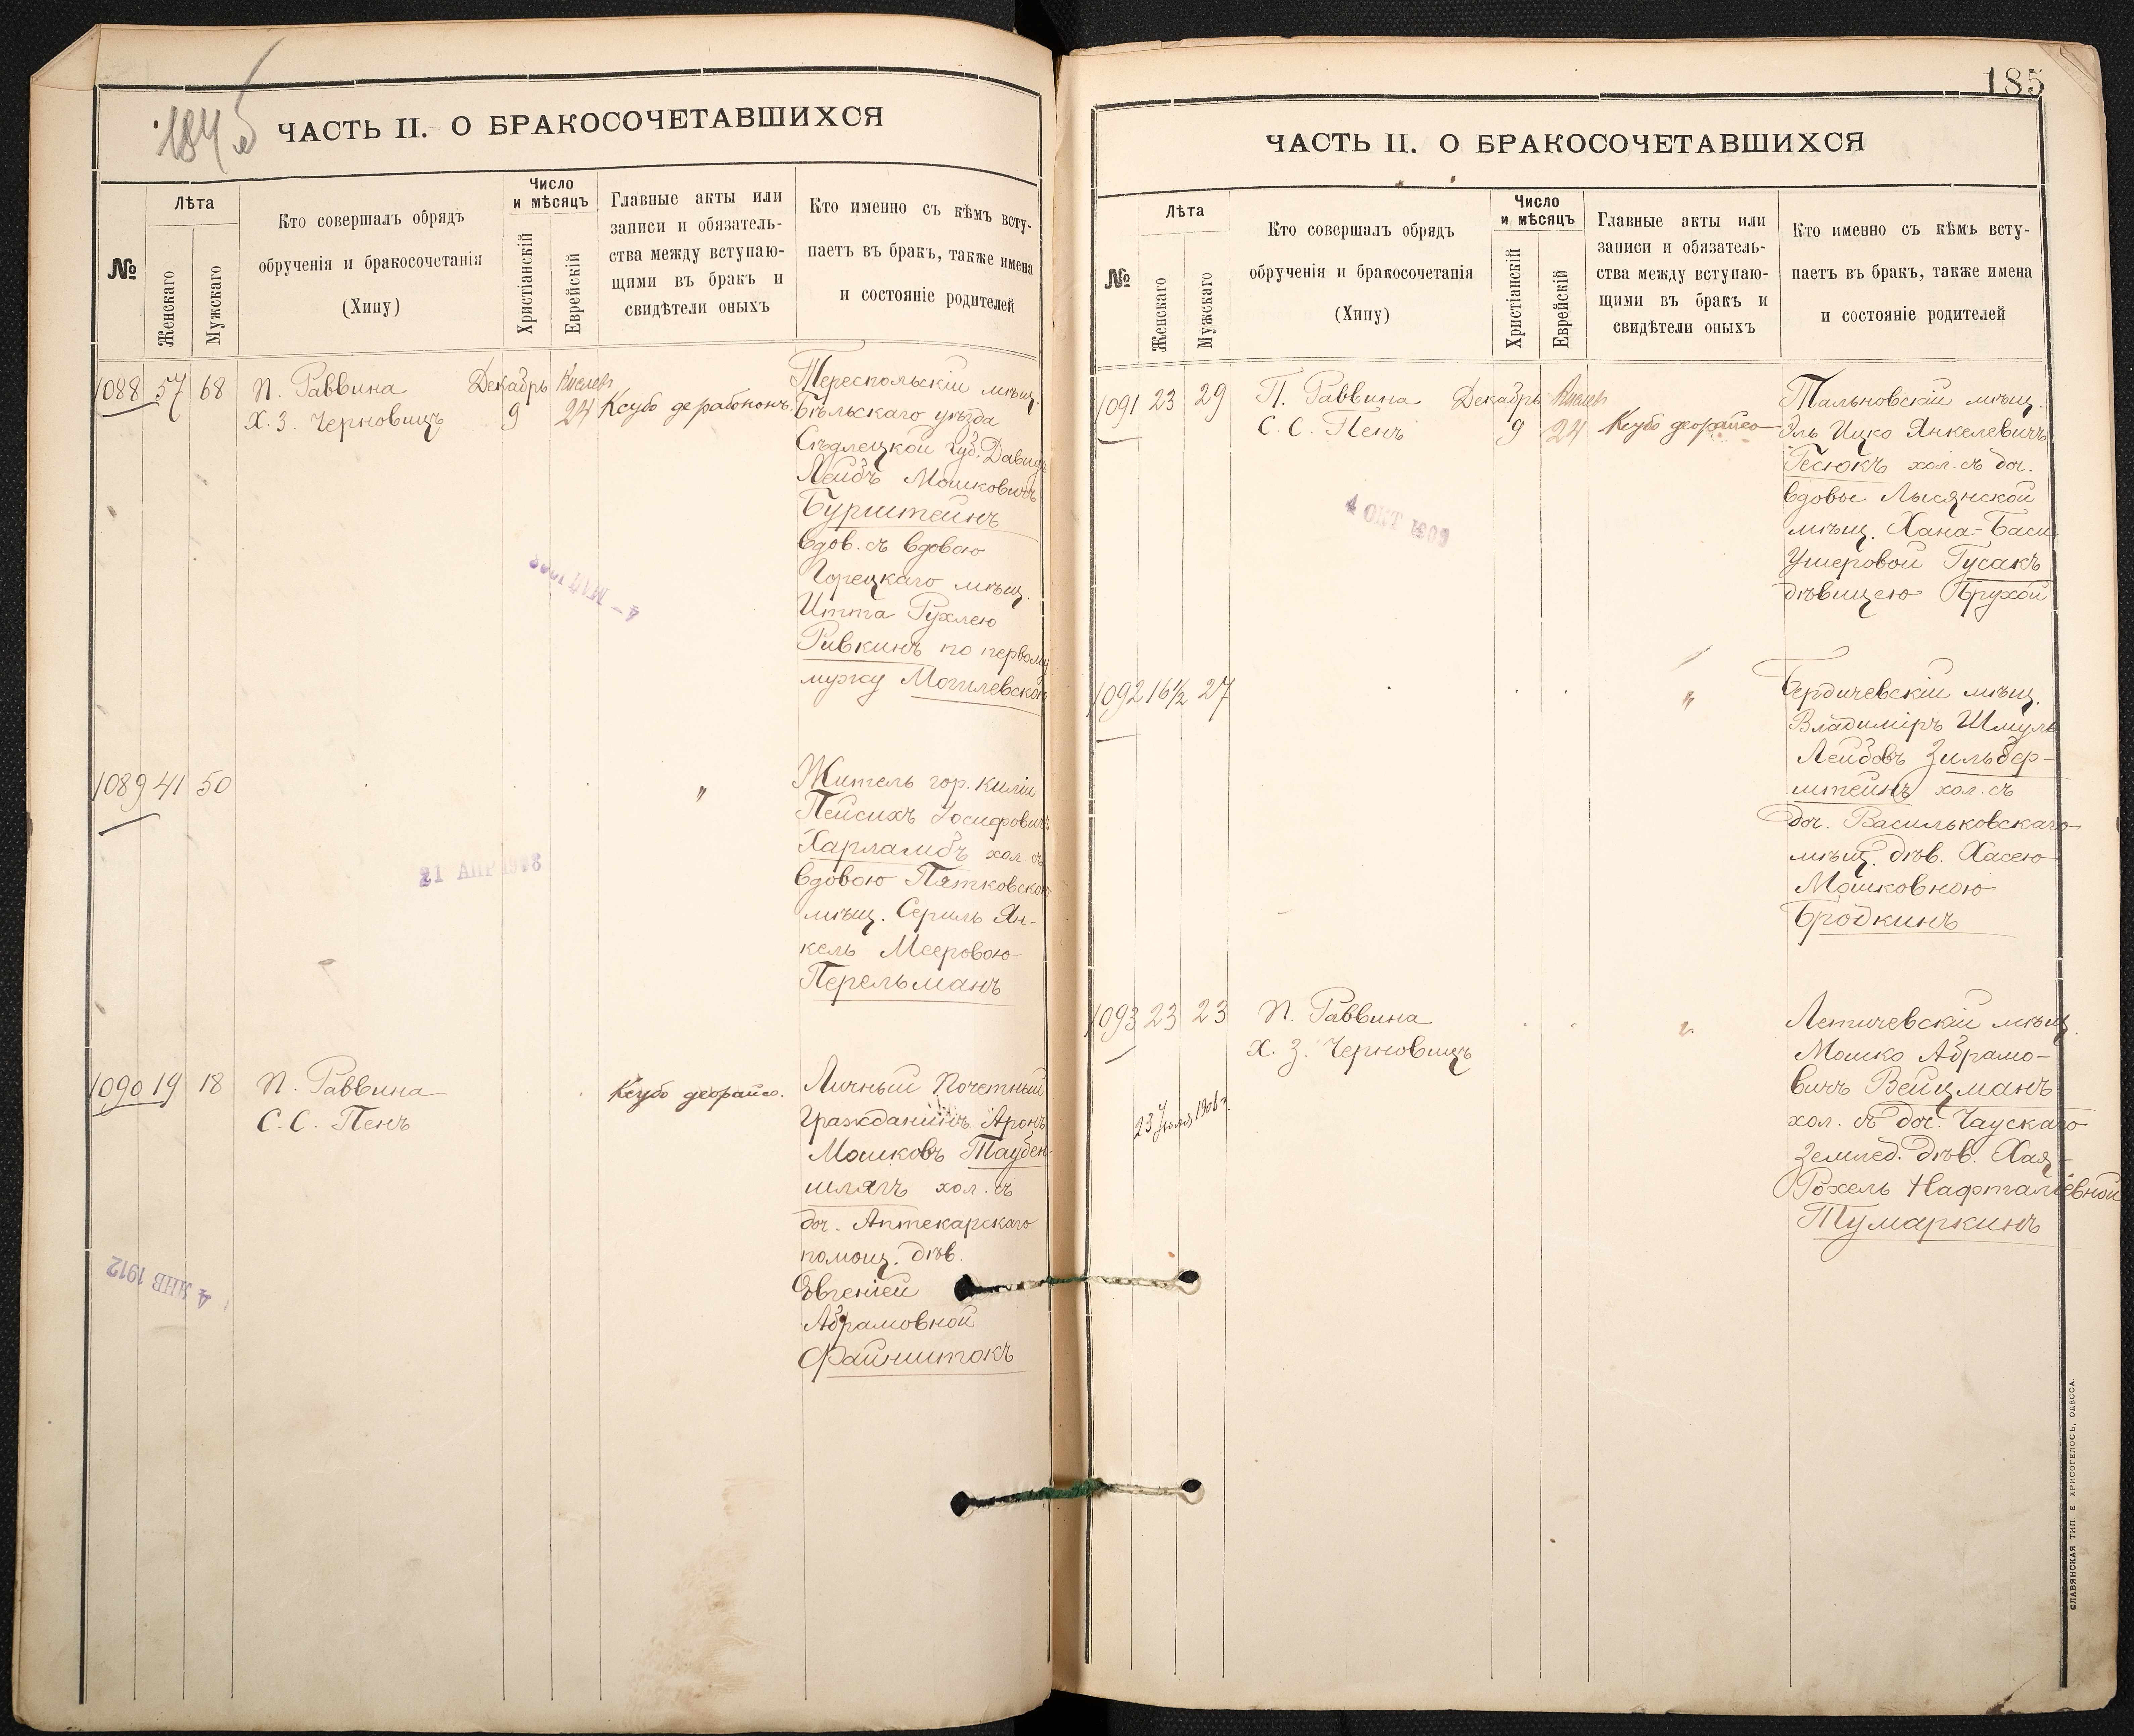 184 б
ЧАСТЬ II. О БРАКОСОЧЕТАВШИХСЯ
№
Лѣта
Женскаго
Мужскаго
Кто совершалъ обрядъ
обрученія и бракосочетанія
(Хипу)
Число
и мѣсяцъ
Христіанскій
Еврейскій
Главные акты или
записи и обязатель-
ства между вступаю-
щими въ бракъ и
свидѣтели оныхъ
Кто именно съ кѣмъ всту-
паетъ въ бракъ, также имена
и состояніе родителей
1088 57 68
П. Раввина
Х. З. Черновицъ
Декабрь
9
Кислев
24
Ксубо дерабононъ.
Тереспольскій мѣщ.
Бѣльскаго уѣзда
Сѣдлецкой губ. Давидъ
Лейбъ Мошковичъ
Бурштейнъ
вдов. съ вдовою
Горецкаго мѣщ.
Итта Рухлею
Ривкинъ по первому
мужу Могилевскою
4 - МАЙ
1089 41 50
"
Житель гор. Киліи
Пейсихъ Іосифовичъ
Харламбъ хол. съ
вдовою Пятковскою
мѣщ. Серилъ Ян-
кель Мееровою
Перельманъ
21 АПР 1908
1090 19 18
П. Раввина
С. С. Пенъ
Ксубо деорайсо.
Личный Почетный
Гражданинъ Аронъ
Мошковъ Таубен-
шлягъ хол. съ
доч. Аптекарскаго
помощ. дѣв.
Евгеніей
Абрамовной
Файнштокъ
4 ЯНВ 1912
185
ЧАСТЬ II. О БРАКОСОЧЕТАВШИХСЯ
№
Лѣта
Женскаго
Мужскаго
Кто совершалъ обрядъ
обрученія и бракосочетанія
(Хипу)
Число
и мѣсяцъ
Христіанскій
Еврейскій
Главные акты или
записи и обязатель-
ства между вступаю-
щими въ бракъ и
свидѣтели оныхъ
Кто именно съ кѣмъ всту-
паетъ въ бракъ, также имена
и состояніе родителей
1091 23 29
П. Раввина
С. С. Пенъ
Декабрь
9
Кислев
24
Ксубо деорайсо
Тальновскій мѣщ.
Эль Ицко Янкелевичъ
Гесюкъ хол. съ доч.
вдовы Лысянской
мѣщ. Хана-Баси
Ушеровой Гусакъ
дѣвицею Брухой
4 ОКТ 1909
1092 16½ 27
"
Бердичевскій мѣщ.
Владиміръ Шмуль
Лейбовъ Зильбер-
штейнъ хол. съ
доч. Васильковскаго
мѣщ. дѣв. Хасею
Мошковною
Бродкинъ
1093 23 23
П. Раввина
Х. З. Черновицъ
Летичевскій мѣщ.
Мошко Абрамо-
вичъ Вейцманъ
хол. съ доч. Чаускаго
Землед. дѣв. Хая-
Рохель Нафталіевной
Тумаркинъ
СЛАВЯНСКАЯ ТИП. Е. ХРИСОГЕЛОСЪ, ОДЕССА.